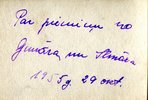 Par piemiņu no
Gunāra un
1955 g. 29 okt.